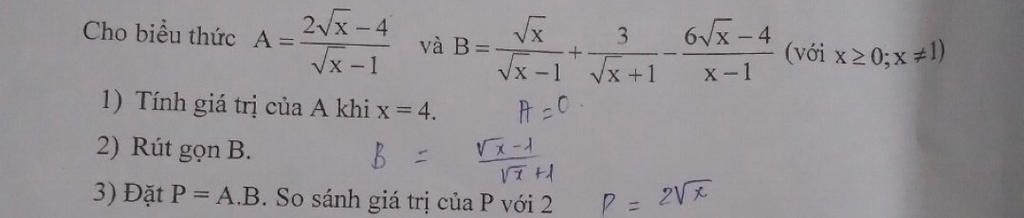 Cho biểu thức A = (2√x − 4)/(√x − 1) và B = √x/(√x − 1) + 3/(√x + 1) − (6√x − 4)/(x − 1) (với x ≥ 0; x ≠ 1)
1) Tính giá trị của A khi x = 4. A = 0
2) Rút gọn B. B = (√x − 1)/(√x + 1)
3) Đặt P = A.B. So sánh giá trị của P với 2 P = 2√x